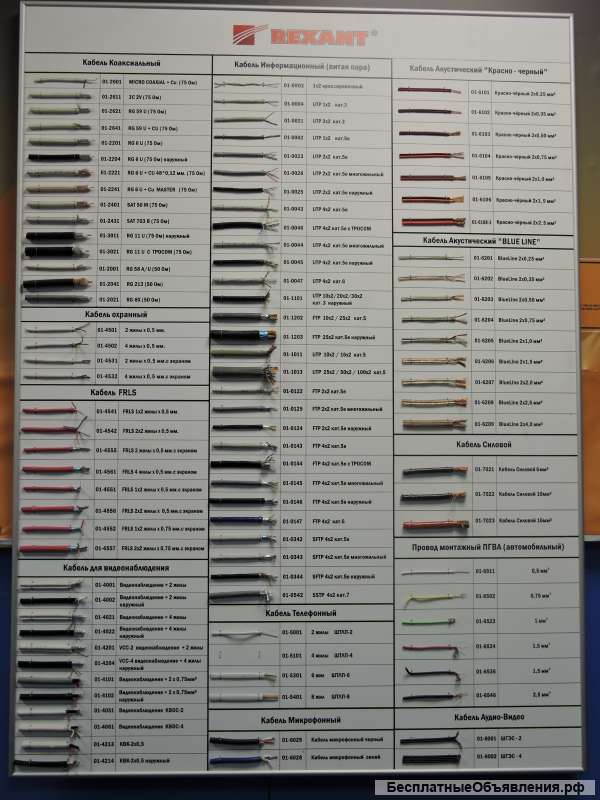 REXANT®
Кабель Коаксиальный
01-2601 MICRO COAXIAL + Cu (75 Ом)
01-2611 3C 2V (75 Ом)
01-2621 RG 59 U (75 Ом)
01-2641 RG 59 U + CU (75 Ом)
01-2201 RG 6 U (75 Ом)
01-2204 RG 6 U (75 Ом) наружный
01-2221 RG 6 U + CU 48*0,12 мм. (75 Ом)
01-2241 RG 6 U + Cu MASTER (75 Ом)
01-2401 SAT 50 M (75 Ом)
01-2431 SAT 703 B (75 Ом)
01-3011 RG 11 U (75 Ом) наружный
01-3021 RG 11 U С ТРОСОМ (75 Ом)
01-2001 RG 58 A/U (50 Ом)
01-2041 RG 213 (50 Ом)
01-2021 RG 8X (50 Ом)
Кабель охранный
01-4501 2 жилы х 0,5 мм.
01-4502 4 жилы х 0,5 мм.
01-4531 2 жилы х 0,5 мм.с экраном
01-4532 4 жилы х 0,5 мм.с экраном
Кабель FRLS
01-4541 FRLS 1х2 жилы х 0,5 мм.
01-4542 FRLS 2х2 жилы х 0,5 мм.
01-4550 FRLS 2 жилы х 0,5 мм.с экраном
01-4561 FRLS 4 жилы х 0,5 мм.с экраном
01-4551 FRLS 1х2 жилы х 0,5 мм.с экраном
01-4556 FRLS 2х2 жилы х 0,5 мм.с экраном
01-4552 FRLS 1х2 жилы х 0,75 мм.с экраном
01-4557 FRLS 2х2 жилы х 0,75 мм.с экраном
Кабель для видеонаблюдения
01-4001 Видеонаблюдение + 2 жилы
01-4002 Видеонаблюдение + 2 жилы
наружный
01-4021 Видеонаблюдение + 4 жилы
01-4022 Видеонаблюдение + 4 жилы
наружный
01-4201 VCC-2 видеонаблюдение + 2 жилы
01-4204 VCC-4 видеонаблюдение + 4 жилы
наружный
01-4101 Видеонаблюдение + 2 х 0,75мм²
01-4102 Видеонаблюдение + 2 х 0,75мм²
наружный
01-4051 Видеонаблюдение КВОС-2
01-4061 Видеонаблюдение КВОС-4
01-4213 КВК-2х0,5
01-4214 КВК-2х0,5 наружный
Кабель Информационный (витая пара)
01-0002 1х2 кроссировочный
01-0004 UTP 1х2 кат.3
01-0021 UTP 2х2 кат.3
01-0002 UTP 1х2 кат.5е
01-0022 UTP 2х2 кат.5е
01-0026 UTP 2х2 кат.5е многожильный
01-0025 UTP 2х2 кат.5е наружный
01-0043 UTP 4х2 кат.5е
01-0046 UTP 4х2 кат.5е с ТРОСОМ
01-0044 UTP 4х2 кат.5е многожильный
01-0045 UTP 4х2 кат.5е наружный
01-0047 UTP 4х2 кат.6
01-1101 UTP 10х2/20х2/30х2
кат.3 наружный
01-1202 FTP 10х2 / 25х2 кат.5
01-1203 FTP 25х2 кат.5е наружный
01-1011 UTP 10х2 / 16х2 кат.5
01-1013 UTP 25х2 / 50х2 / 100х2 кат.5
01-0122 FTP 2х2 кат.5е
01-0125 FTP 2х2 кат.5е многожильный
01-0124 FTP 2х2 кат.5е наружный
01-0143 FTP 4х2 кат.5е
01-0144 FTP 4х2 кат.5е с ТРОСОМ
01-0145 FTP 4х2 кат.5е многожильный
01-0146 FTP 4х2 кат.5е наружный
01-0147 FTP 4х2 кат.6
01-0342 SFTP 4х2 кат.5е
01-0343 SFTP 4х2 кат.5е многожильный
01-0344 SFTP 4х2 кат.5е наружный
01-0542 SSTP 4х2 кат.7
Кабель Телефонный
01-5001 2 жилы ШТЛП-2
01-5101 4 жилы ШТЛП-4
01-5301 6 жил ШТЛП-6
01-5401 8 жил ШТЛП-8
Кабель Микрофонный
01-6025 Кабель микрофонный черный
01-6026 Кабель микрофонный синий
Кабель Акустический "Красно - черный"
01-6101 Красно-чёрный 2х0,25 мм²
01-6102 Красно-чёрный 2х0,35 мм²
01-6103 Красно-чёрный 2х0,50 мм²
01-6104 Красно-чёрный 2х0,75 мм²
01-6105 Красно-чёрный 2х1,0 мм²
01-6106 Красно-чёрный 2х1,5 мм²
Красно-чёрный 2х2,5 мм²
Кабель Акустический "BLUE LINE"
01-6201 BlueLine 2х0,25 мм²
01-6202 BlueLine 2х0,35 мм²
01-6203 BlueLine 2х0,50 мм²
01-6204 BlueLine 2х0,75 мм²
01-6205 BlueLine 2х1,0 мм²
01-6206 BlueLine 2х1,5 мм²
01-6207 BlueLine 2х2,0 мм²
01-6208 BlueLine 2х2,5 мм²
01-6209 BlueLine 2х4,0 мм²
Кабель Силовой
01-7021 Кабель Силовой 6мм²
01-7022 Кабель Силовой 10мм²
01-7023 Кабель Силовой 16мм²
Провод монтажный ПГВА (автомобильный)
01-6511 0,5 мм²
01-6502 0,75 мм²
01-6523 1 мм²
01-6524 1,5 мм²
01-6536 1,5 мм²
01-6546 2,5 мм²
Кабель Аудио-Видео
01-6001 ШГЭС - 2
01-6003 ШГЭС - 4
БесплатныеОбъявления.рф